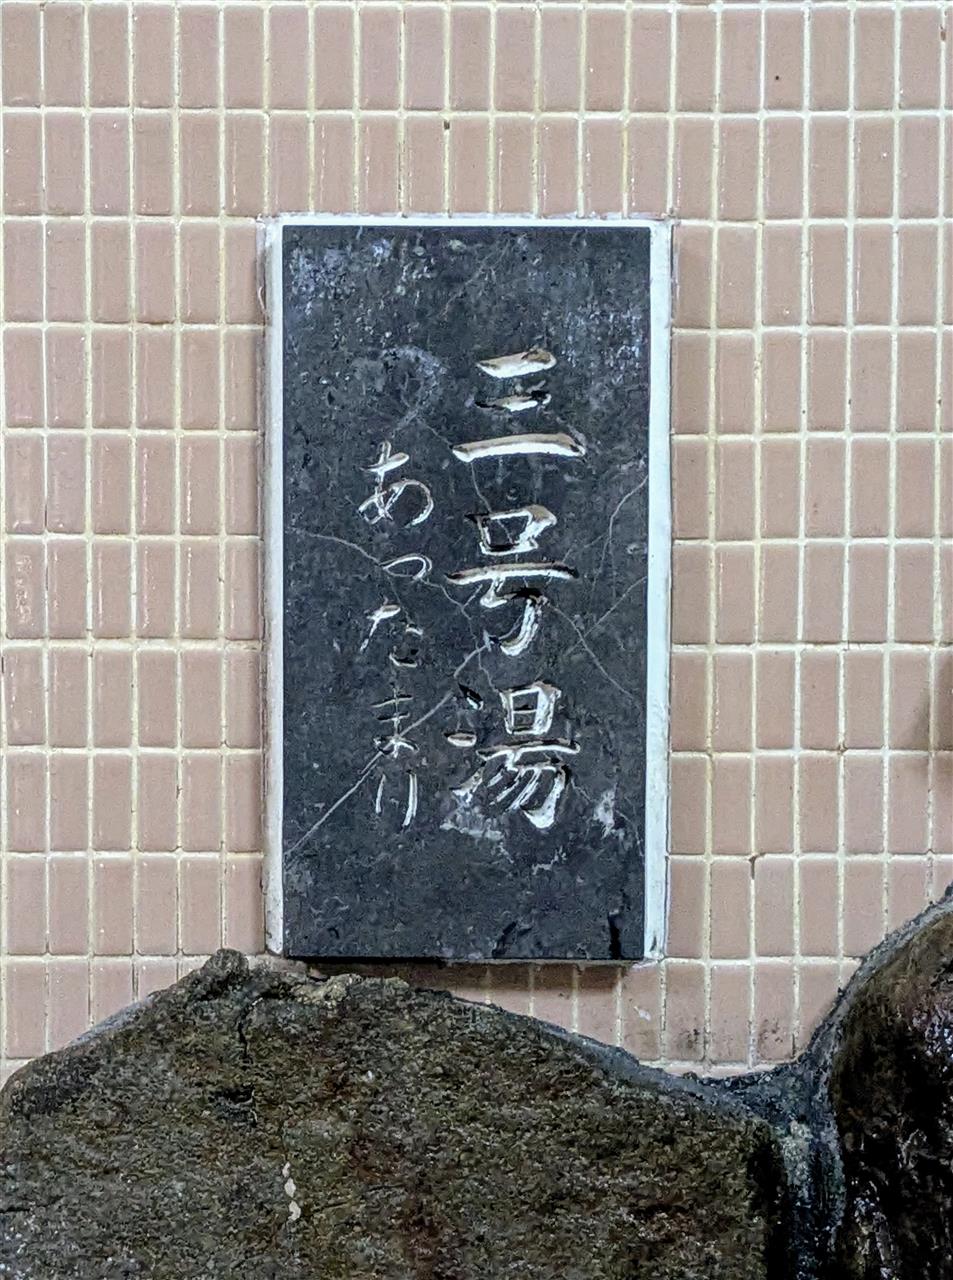 三号湯
あったまり